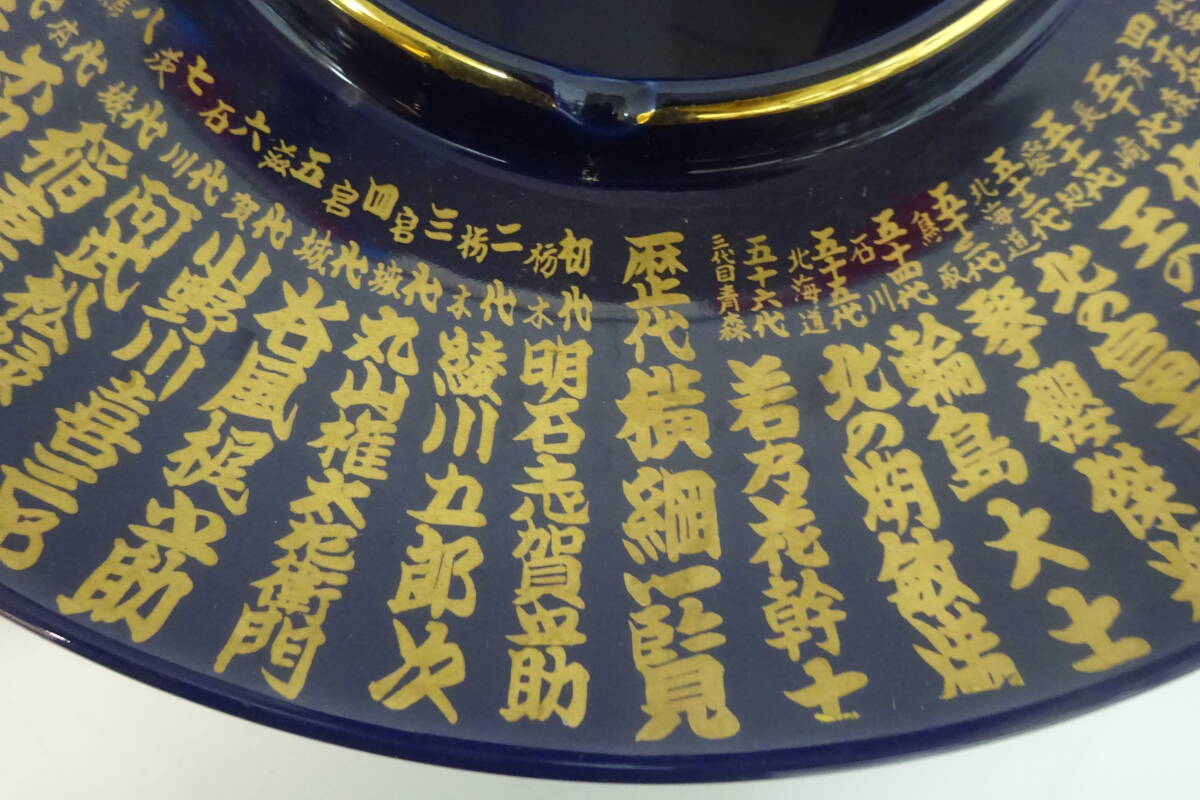 歴代横綱一覧
初代
栃木
明石志賀之助
二代
栃木
綾川五郎次
三代
宮城
丸山権太左衛門
四代
宮城
谷風梶之助
五代
滋賀
小野川喜三郎
六代
石川
阿武松
七代
茨城
稲妻
八代
四十九代
青森
五十代
長崎
五十一代
愛媛
玉の
五十二代
北海道
北の富
五十三代
鳥取
琴櫻傑将
五十四代
石川
輪島大士
五十五代
北海道
北の湖敏満
五十六代
三代目青森
若乃花幹士